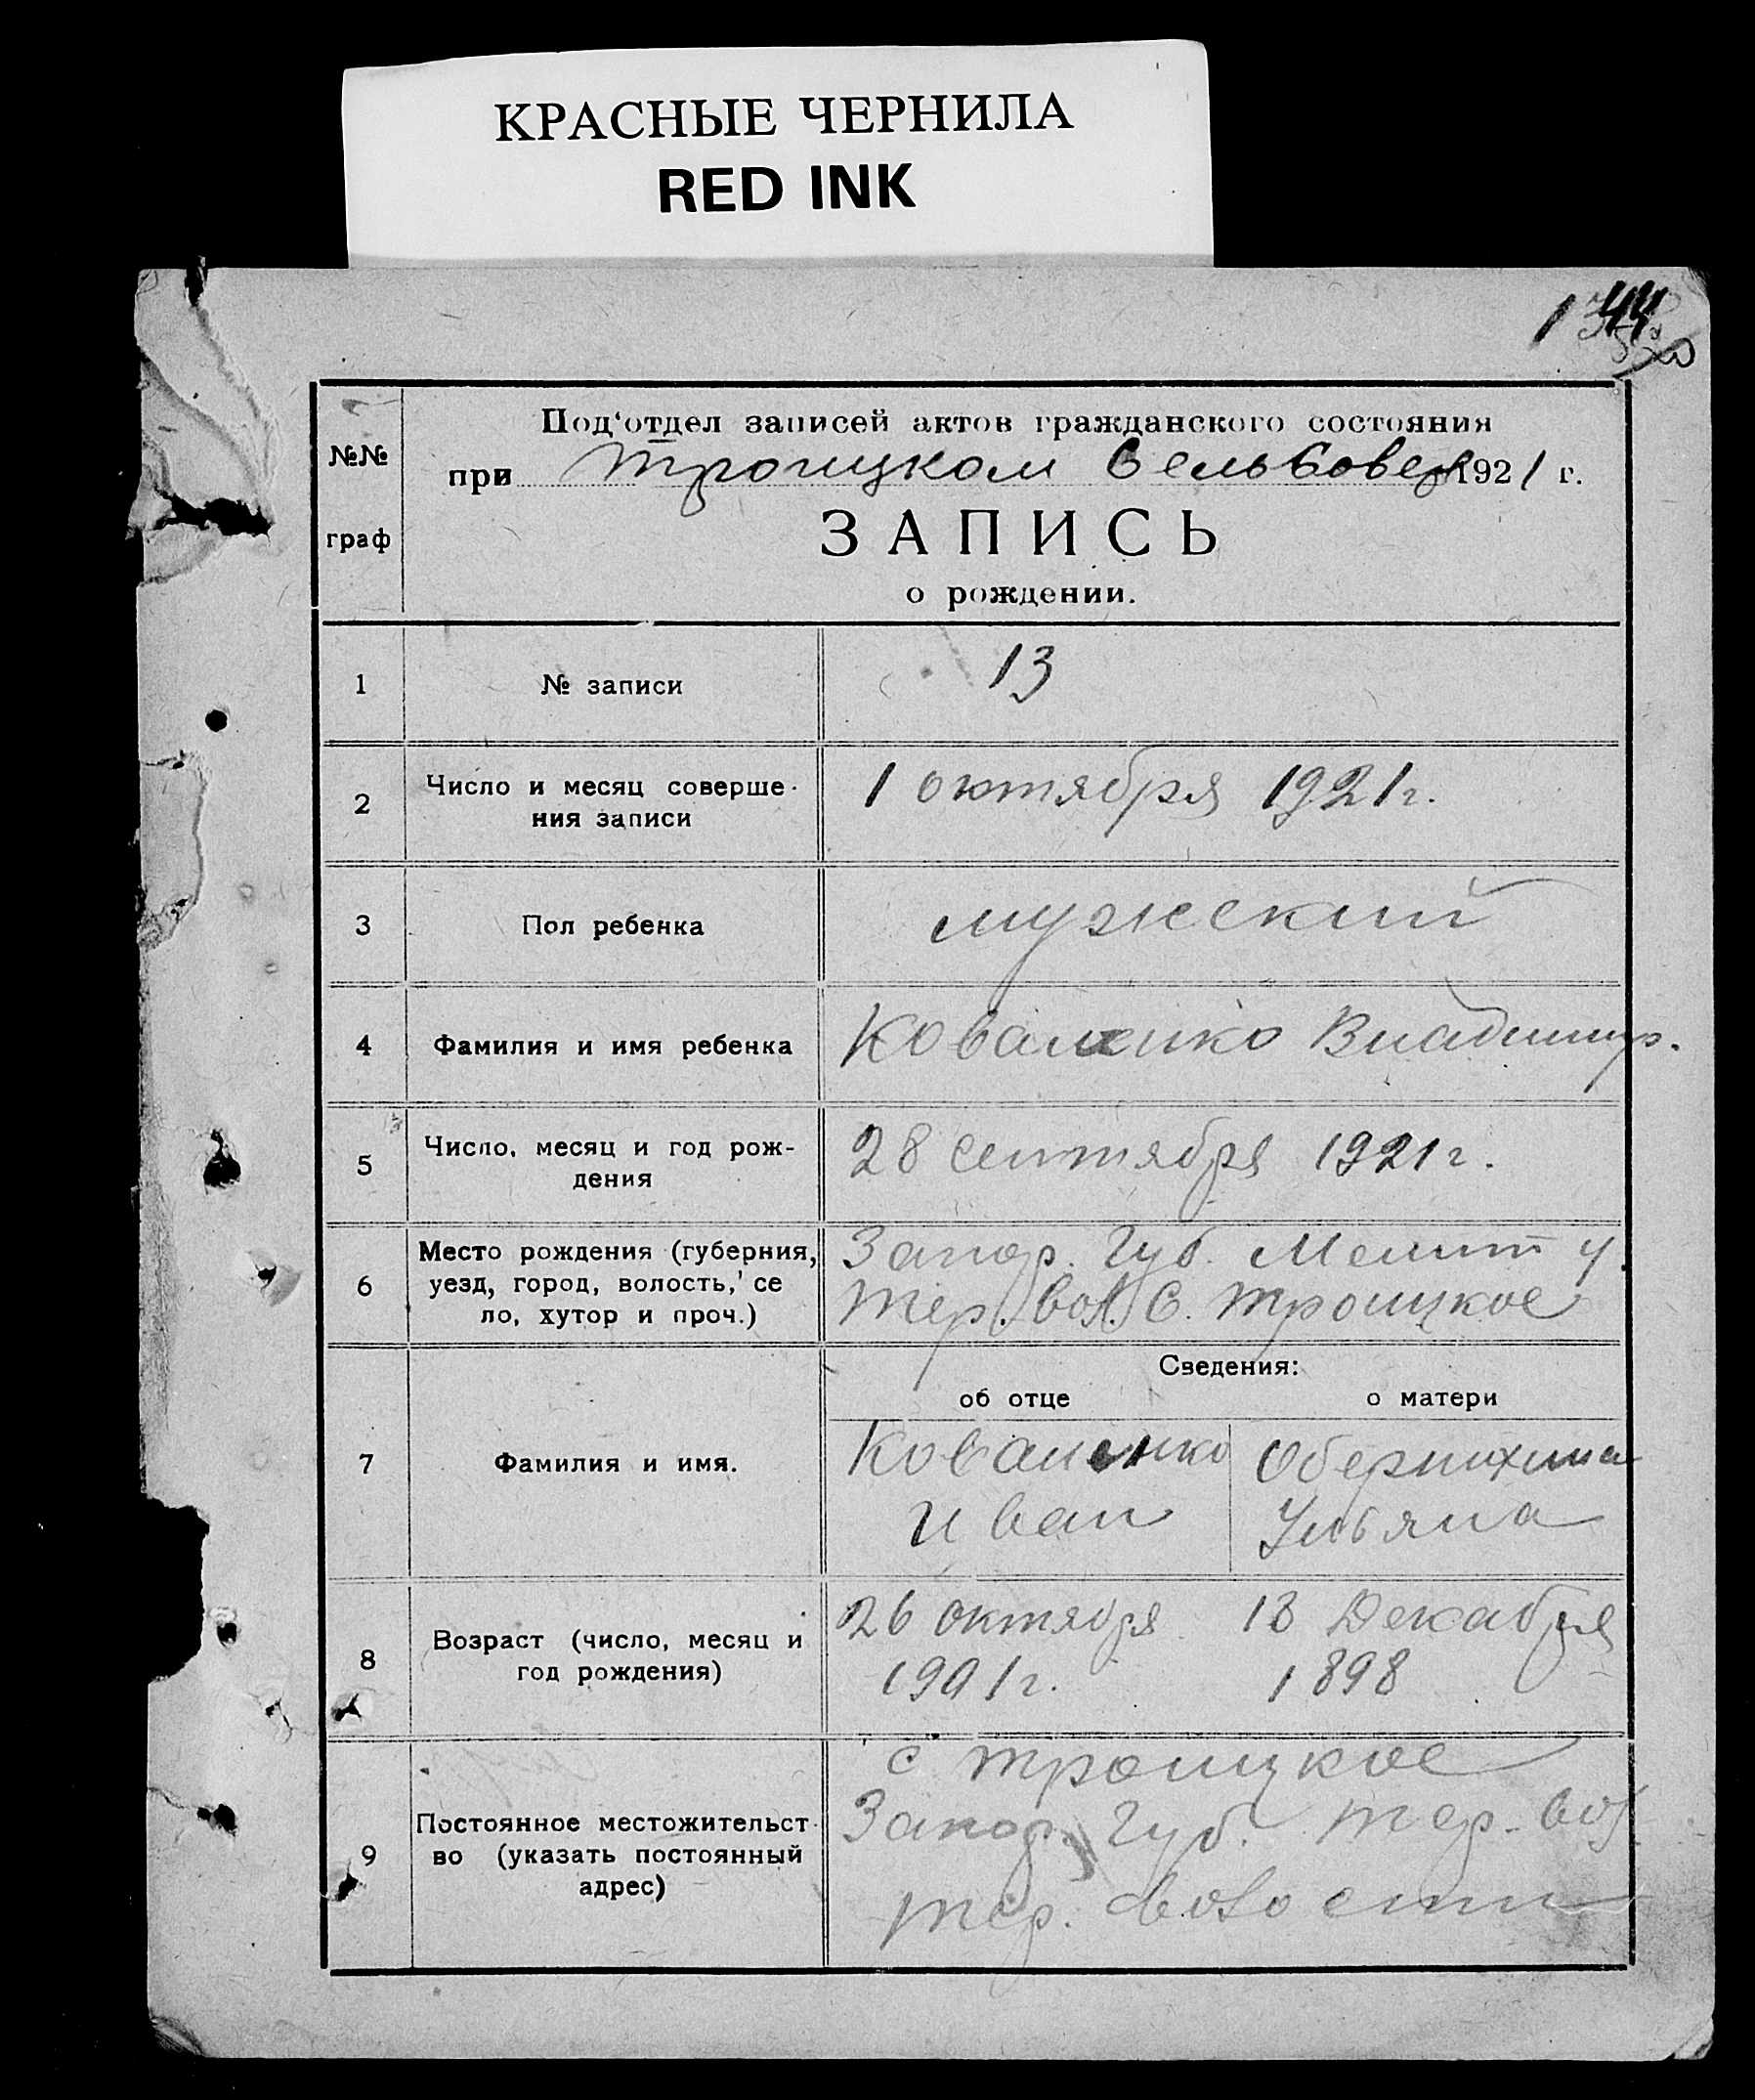 КРАСНЫЕ ЧЕРНИЛА
RED INK
144
№№
граф
Под‘отдел записей актов гражданского состояния
при Троицком Сельсовет 1921 г.
ЗАПИСЬ
о рождении.
1 № записи 13
2 Число и месяц соверше-
ния записи
1 октября 1921г.
3 Пол ребенка мужеский
4 Фамилия и имя ребенка Коваленко Владимир.
5 Число, месяц и год рож-
дения
28 сентября 1921г.
6 Место рождения (губерния,
уезд, город, волость, се
ло, хутор и проч.)
Запор. Губ. Мелит у.
Тер. вол. С. Троицкое
Сведения:
об отце о матери
7 Фамилия и имя.
Коваленко
Иван
Ульяна
8 Возраст (число, месяц и
год рождения)
26 октября
1901г.
13 Декабря
1898
9 Постоянное местожительст-
во (указать постоянный
адрес)
с Троицкое
Запор. Губ. Тер. вол.
Тер. волости